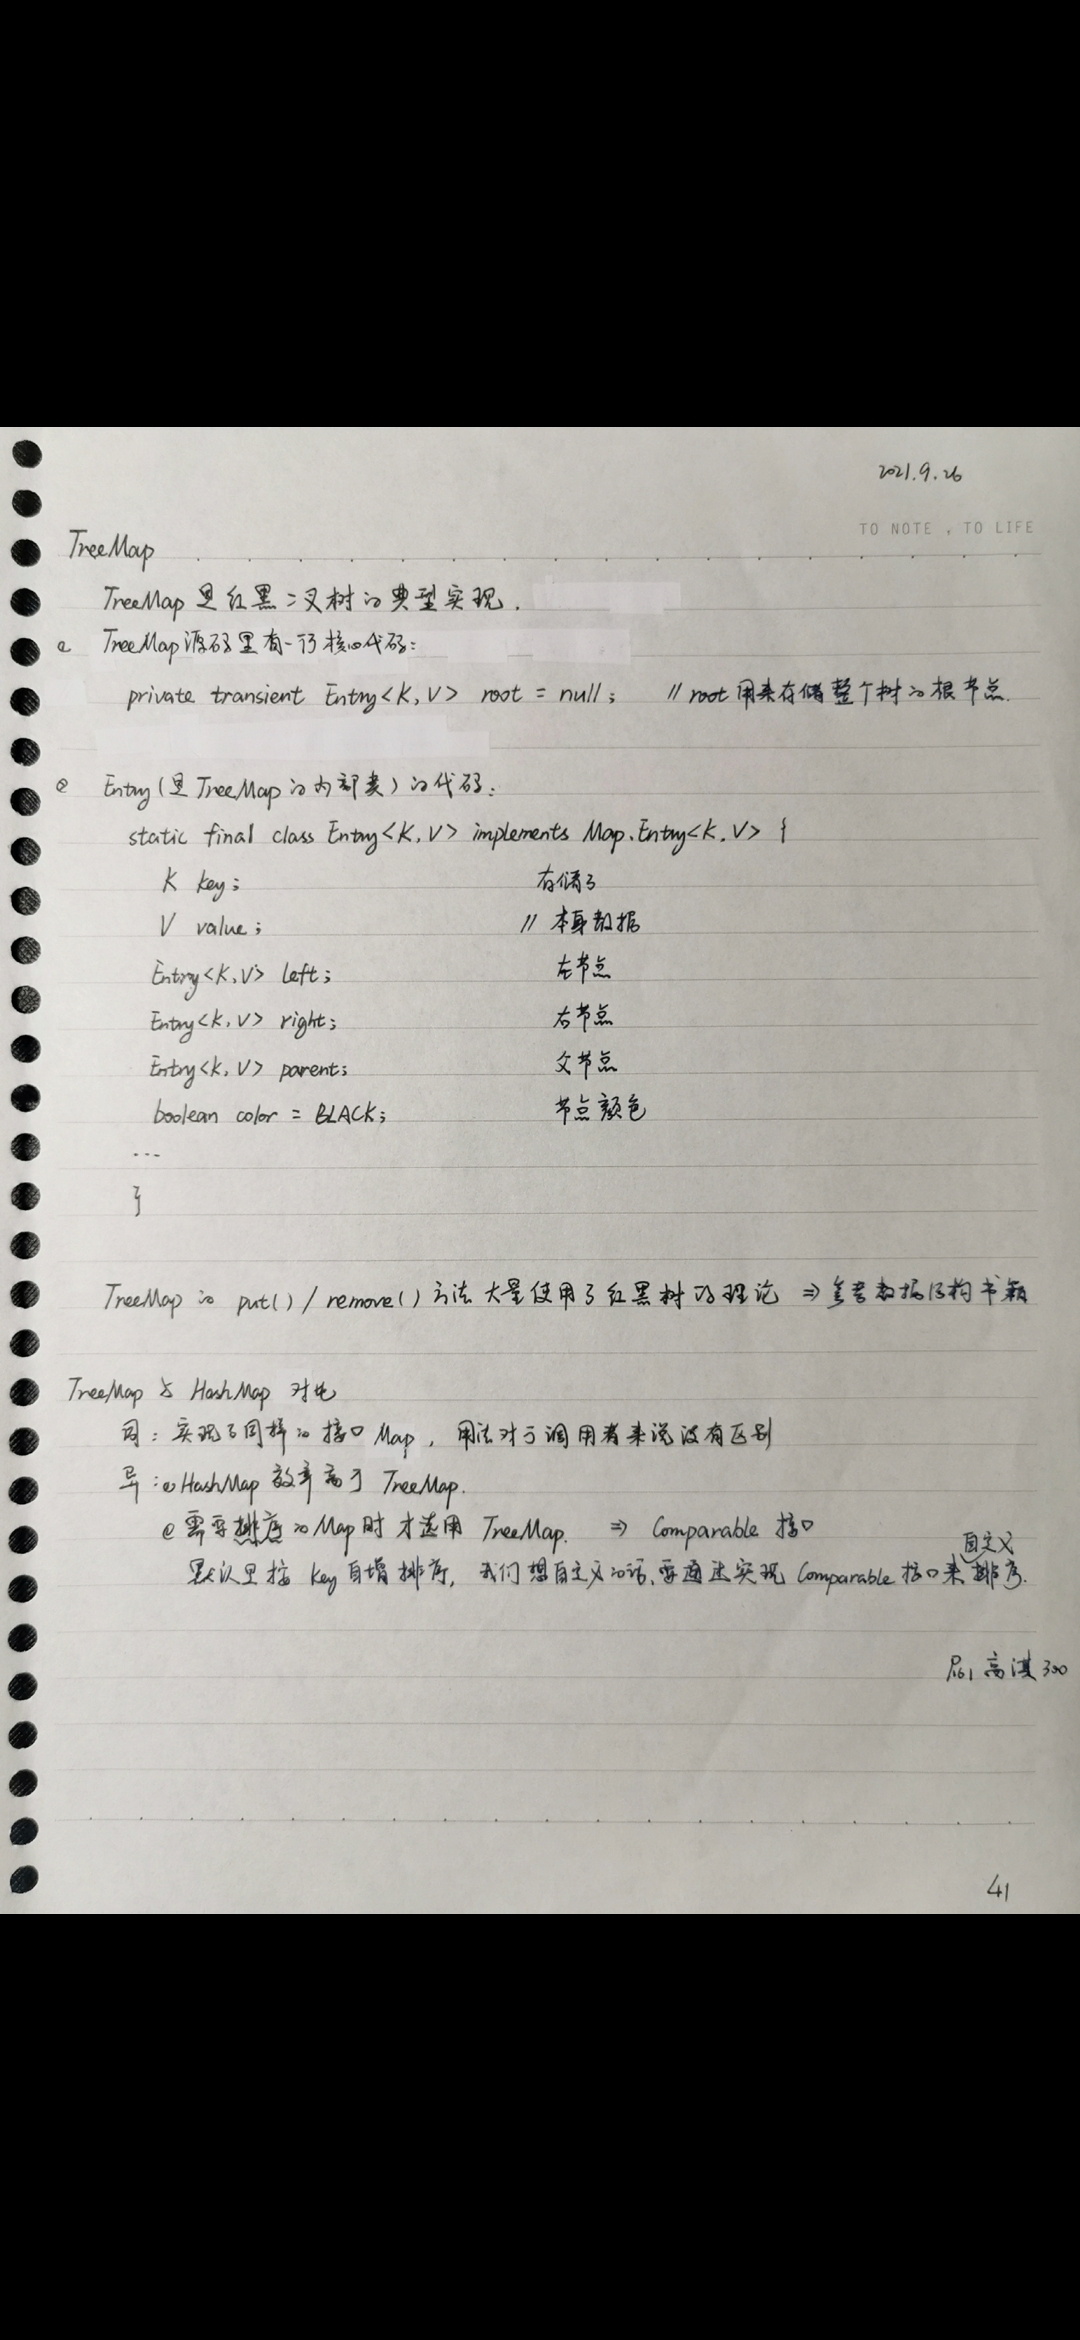 2021.9.26
TO NOTE , TO LIFE
TreeMap
TreeMap 是红黑二叉树的典型实现.
TreeMap源码里有一行核心代码:
private transient Entry<K,V> root = null; // root 用来存储整个树的根节点.
Entry(是TreeMap的内部类)的代码:
static final class Entry<K,V> implements Map.Entry<K,V> {
K key; 存储了
V value; // 本身数据
Entry<K,V> left; 左节点
Entry<K,V> right; 右节点
Entry<K,V> parent; 父节点
boolean color = BLACK; 节点颜色
...
}
TreeMap的 put() / remove() 方法大量使用了红黑树的理论 ⇒ 参考数据结构书籍
TreeMap 与 HashMap 对比
同: 实现了同样的接口 Map, 用法对于调用者来说没有区别
异: HashMap 效率高于 TreeMap.
需要排序的Map时才选用 TreeMap. ⇒ Comparable 接口
自定义
默认是按 key 自增排序, 我们想自定义的话,要通过实现 Comparable 接口来排序.
P161 高淇300
41